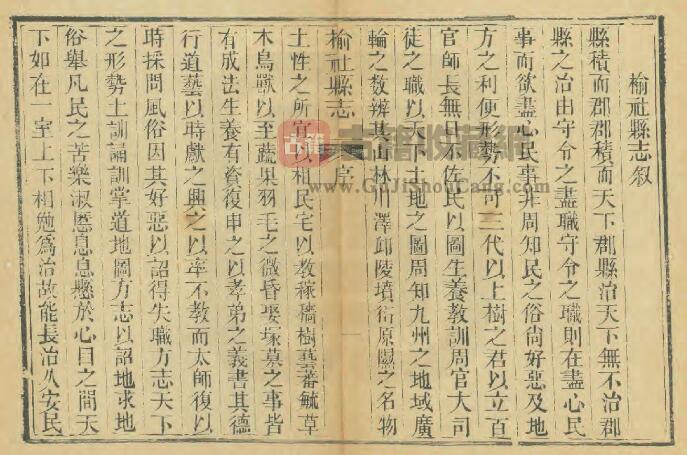 榆社縣志叙
縣積而郡郡積而天下郡縣治天下無不治郡
縣之治由守令之盡職守令之職則在盡心民
事而欲盡心民事非周知民之俗尚好惡及地
方之利便形勢不可三代以上樹之君以立百
官師長無日不佐民以圖生養教訓周官大司
徒之職以天下土地之圖周知九州之地域廣
輪之数辨其山林川澤邱陵墳衍原隰之名物
榆社縣志 序 一
土性之所宜以相民宅以教稼穡樹藝蕃毓草
木鳥獸以至蔬果羽毛之微昏娶塚墓之事皆
有成法生養有資復申之以孝弟之義書其德
行道藝以時獻之興之以率不教而太師復以
時採問風俗因其好惡以詔得失職方志天下
之形勢土訓誦訓掌道地圖方志以詔地求地
俗舉凡民之苦樂淑慝息息懸於心目之間天
下如在一室上下相勉為治故能長治久安民
古籍收藏网
www.GuJiShouCang.com